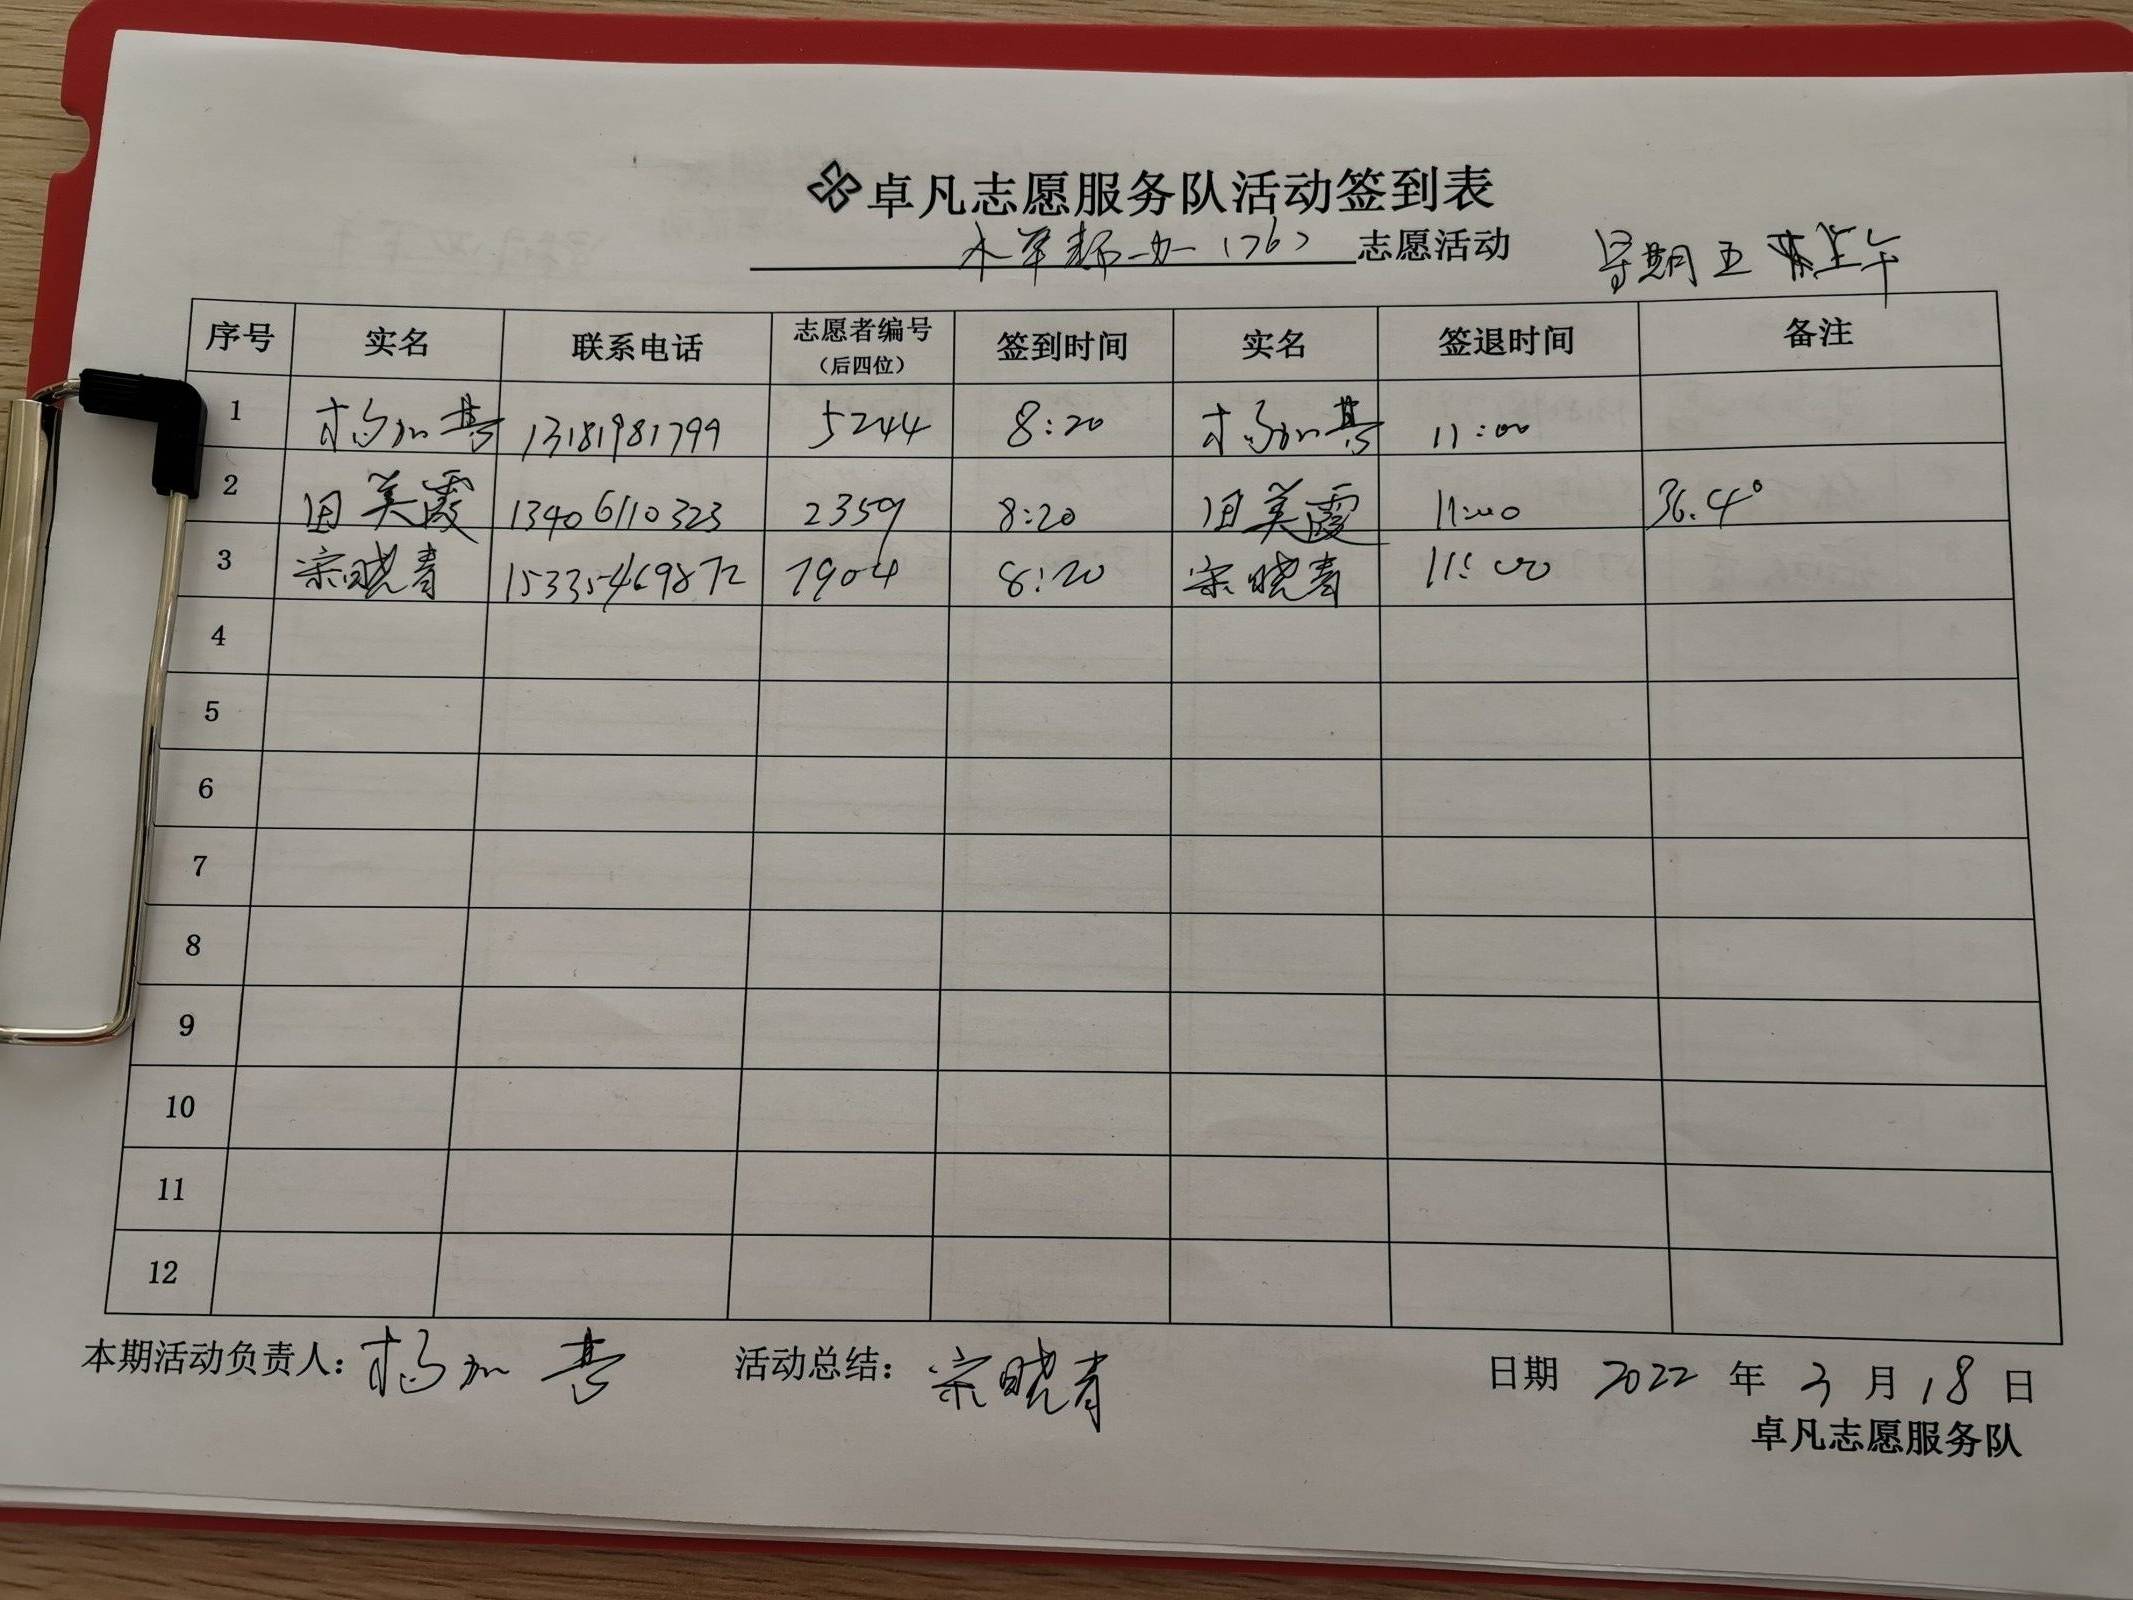 卓凡志愿服务队活动签到表
志愿活动 星期五 上午
序号 实名 联系电话 志愿者编号（后四位） 签到时间 实名 签退时间 备注
1 杨加恭 13181981799 5244 8:20 杨加恭 11:00
2 田美霞 13406110323 2359 8:20 田美霞 11:00 36.4°
3 宗晓青 15335469872 7904 8:20 宗晓青 11:00
4
5
6
7
8
9
10
11
12
本期活动负责人：杨加恭 活动总结：宗晓青 日期 2022 年 3 月 18 日
卓凡志愿服务队